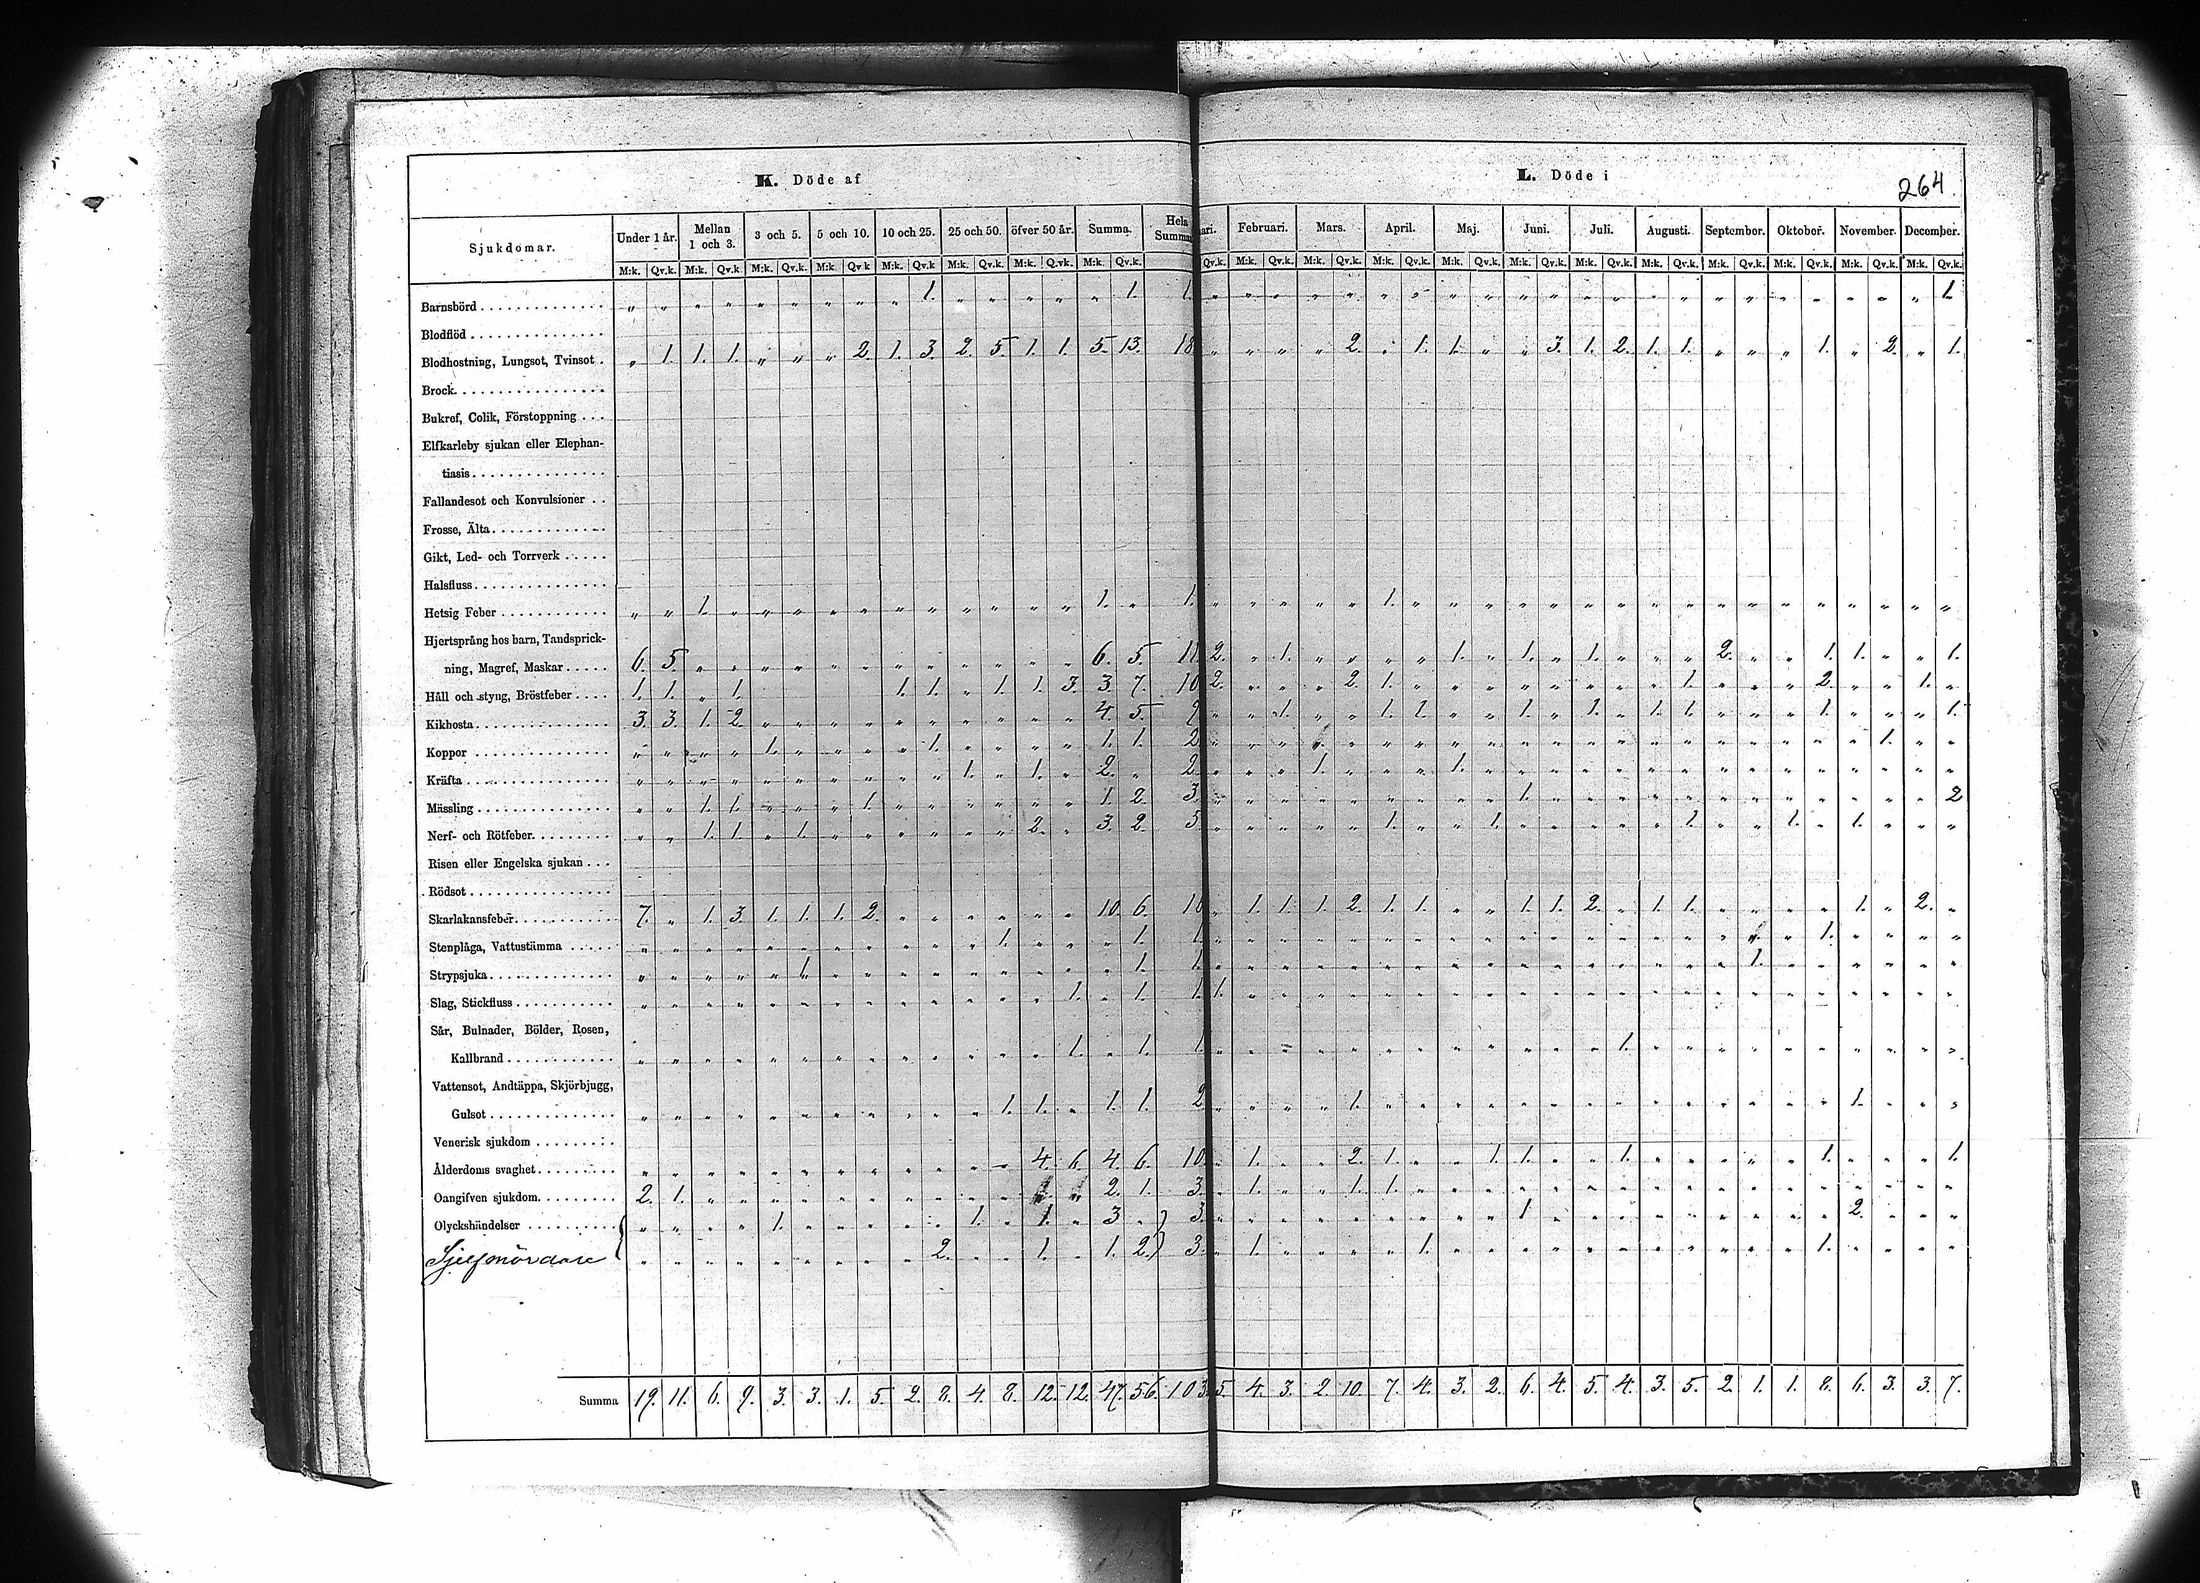 K. Döde af
L. Döde i
264
Sjukdomar. Under 1 år. Mellan 1 och 3. 3 och 5. 5 och 10. 10 och 25. 25 och 50. öfver 50 år. Summa. Hela Summan Februari. Mars. April. Maj. Juni. Juli. Augusti. September. Oktober. November. December.
M:k. Qv.k. M:k. Qv.k. M:k. Qv.k. M:k. Qv.k M:k. Qv.k M:k. Qv.k. M:k. Qv.k. M:k. Qv.k. Qv.k. M:k. Qv.k. M:k. Qv.k. M:k. Qv.k. M:k. Qv.k. M:k. Qv.k. M:k. Qv.k. M:k. Qv.k. M:k. Qv.k. M:k. Qv.k. M:k. Qv.k. M:k. Qv.k.
Barnsbörd „ „ „ „ „ „ „ „ „ 1. „ „ „ „ „ 1. 1. „ „ „ „ „ „ „ „ „ „ „ „ „ „ „ „ „ „ „ „ „ 1.
Blodflöd
Blodhostning, Lungsot, Tvinsot „ 1. 1. 1. „ „ „ 2. 1. 3. 2. 5. 1. 1. 5. 13. 18 „ „ „ „ 2. „ 1. 1. „ „ 3. 1. 2. 1. 1. „ „ „ 1. „ 2. „ 1.
Brock
Bukref, Colik, Förstoppning
Elfkarleby sjukan eller Elephan-
tiasis
Fallandesot och Konvulsioner
Frosse, Älta
Gikt, Led- och Torrverk
Halsfluss
Hetsig Feber „ „ 1. „ „ „ „ „ „ „ „ „ „ „ 1. „ 1. „ „ „ „ „ 1. „ „ „ „ „ „ „ „ „ „ „ „ „ „ „ „ „
Hjertsprång hos barn, Tandsprick-
ning, Magref, Maskar 6. 5. „ „ „ „ „ „ „ „ „ „ „ „ 6. 5. 11 2. „ 1. „ „ „ „ 1. „ 1. „ 1. „ „ „ 2. „ „ 1. 1. „ „ 1.
Håll och styng, Bröstfeber 1. 1. „ 1. 1. 1. „ 1. 1. 3. 3. 7. 10 2. „ „ „ 2. 1. „ „ „ „ „ „ „ „ 1. „ „ „ 2. „ „ 1. „
Kikhosta 3. 3. 1. 2. „ „ „ „ „ „ „ „ „ „ 4. 5. 9 „ „ 1. „ „ 1. 1. „ „ 1. „ 1. „ 1. 1. „ „ „ 1. „ „ „ 1.
Koppor „ „ „ „ 1. „ „ „ „ 1. „ „ „ „ 1. 1. 2 „ „ „ „ „ „ „ „ „ „ „ „ „ „ „ „ „ „ „ 1. „ „
Kräfta „ „ „ „ „ „ „ „ „ „ 1. „ 1. „ 2. „ 2. „ „ „ 1. „ „ „ 1. „ „ „ „ „ „ „ „ „ „ „ „ „ „ „
Mässling „ „ 1. 1. „ „ „ 1. „ „ „ „ „ „ 1. 2. 3 „ „ „ „ „ „ „ „ „ 1. „ „ „ „ „ „ „ „ „ „ „ „ 2
Nerf- och Rötfeber „ „ 1. 1. „ 1. „ „ „ „ „ „ 2. „ 3. 2. 5 „ „ „ „ „ 1. „ „ 1. „ „ „ „ „ 1. „ „ 1. „ 1. „ „ „
Risen eller Engelska sjukan
Rödsot
Skarlakansfeber 7. „ 1. 3. 1. 1. 1. 2. „ „ „ „ „ „ 10. 6. „ 1. 1. 1. 2. 1. 1. „ „ 1. 1. 2. „ 1. 1. „ „ „ „ 1. „ 2. „
Stenplåga, Vattustämma „ „ „ „ „ „ „ „ „ „ „ 1. „ „ „ 1. 1. „ „ „ „ „ „ „ „ „ „ „ „ „ „ „ „ „ „ 1. „ „ „ „
Strypsjuka „ „ „ „ „ 1. „ „ „ „ „ „ „ „ „ 1. 1. „ „ „ „ „ „ „ „ „ „ „ „ „ „ „ „ 1. „ „ „ „ „ „
Slag, Stickfluss „ „ „ „ „ „ „ „ „ „ „ „ „ 1. „ 1. 1. 1. „ „ „ „ „ „ „ „ „ „ „ „ „ „ „ „ „ „ „ „ „ „
Sår, Bulnader, Bölder, Rosen,
Kallbrand „ „ „ „ „ „ „ „ „ „ „ „ „ 1. „ 1. 1 „ „ „ „ „ „ „ „ „ „ „ „ 1. „ „ „ „ „ „ „ „ „ „
Vattensot, Andtäppa, Skjörbjugg,
Gulsot „ „ „ „ „ „ „ „ „ „ „ 1. 1. „ 1. 1. 2 „ „ „ „ 1. „ „ „ „ „ „ „ „ „ „ „ „ „ „ 1. „ „ „
Venerisk sjukdom
Ålderdoms svaghet „ „ „ „ „ „ „ „ „ „ „ „ 4. 6. 4. 6. 10 „ 1. „ „ 2. 1. „ „ 1. 1. „ „ 1. „ „ „ „ „ 1. „ „ „ 1.
Oangifven sjukdom 2. 1. „ „ „ „ „ „ „ „ „ „ „ „ 2. 1. 3. „ 1. „ „ 1. 1. „ „ „ „ „ „ „ „ „ „ „ „ „ „ „ „ „
Olyckshändelser „ „ „ „ 1. „ „ „ „ „ 1. „ 1. „ 3 „ 3. „ „ „ „ „ „ „ „ „ 1 „ „ „ „ „ „ „ „ „ 2. „ „ „
Sjelfmördare „ „ „ „ „ „ „ „ „ 2. „ „ 1. „ 1. 2. 3. „ 1. „ „ „ „ 1. „ „ „ „ „ „ „ „ „ „ „ 1. „ „ „ „
Summa 19. 11. 6. 9. 3. 3. 1. 5. 2. 8. 4. 8. 12. 12. 47. 56. 103. 5. 4. 3. 2. 10. 7. 4. 3. 2. 6. 4. 5. 4. 3. 5. 2. 1. 1. 8. 6. 3. 3. 7.